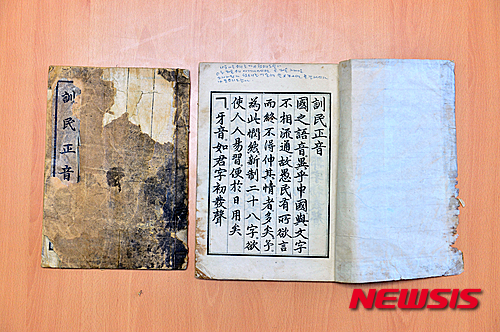 訓民正音
訓民正音
國之語音異乎中國與文字
不相流通故愚民有所欲言
而終不得伸其情者多矣予
為此憫然新制二十八字欲
使人人易習便於日用矣
ㄱ牙音如君字初發聲
NEWSIS